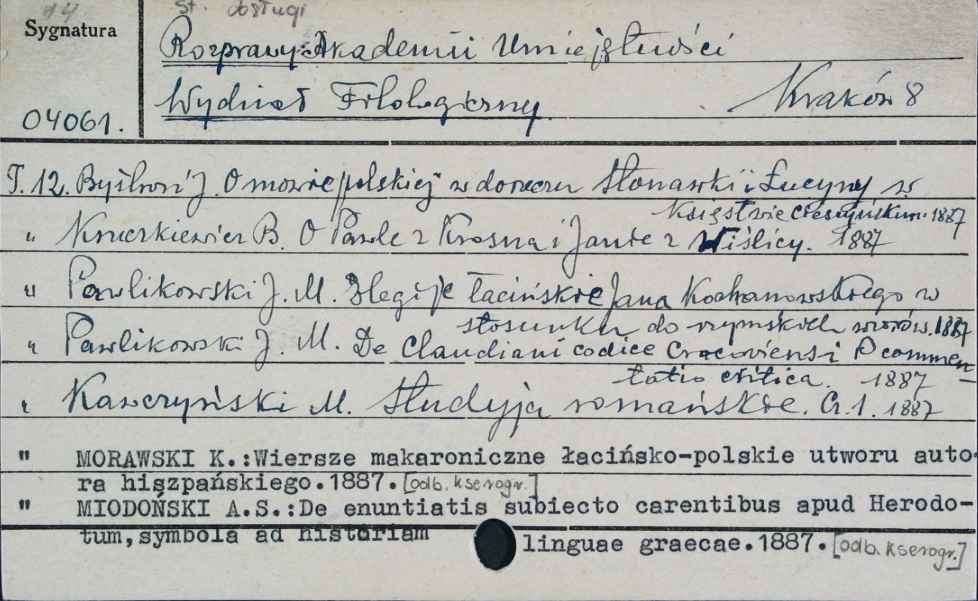 14 st. obsługi
Sygnatura
Rozprawy Akademii Umiejętności
Wydział Filologiczny Kraków 8
04061.
T. 12. Bystroń J. O mowie polskiej w dorzeczu Stonawki i Łucyny w
Księstwie cieszyńskim. 1887
" Kruczkiewicz B. O Pawle z Krosna i Janie z Wiślicy. 1887
" Pawlikowski J. M. Elegije łacińskie Jana Kochanowskiego w
stosunku do rzymskich wzorów. 1887
" Pawlikowski J. M. De Claudiani codice Cracoviensi Dcommen-
tatio critica. 1887
" Kawczyński M. Studyja romańskie. Cz. 1. 1887
" MORAWSKI K.:Wiersze makaroniczne łacińsko-polskie utworu auto-
ra hiszpańskiego.1887.[odb. kserogr.]
" MIODOŃSKI A.S.:De enuntiatis subiecto carentibus apud Herodo-
tum,symbola ad historiam linguae graecae.1887.[odb. kserogr.]